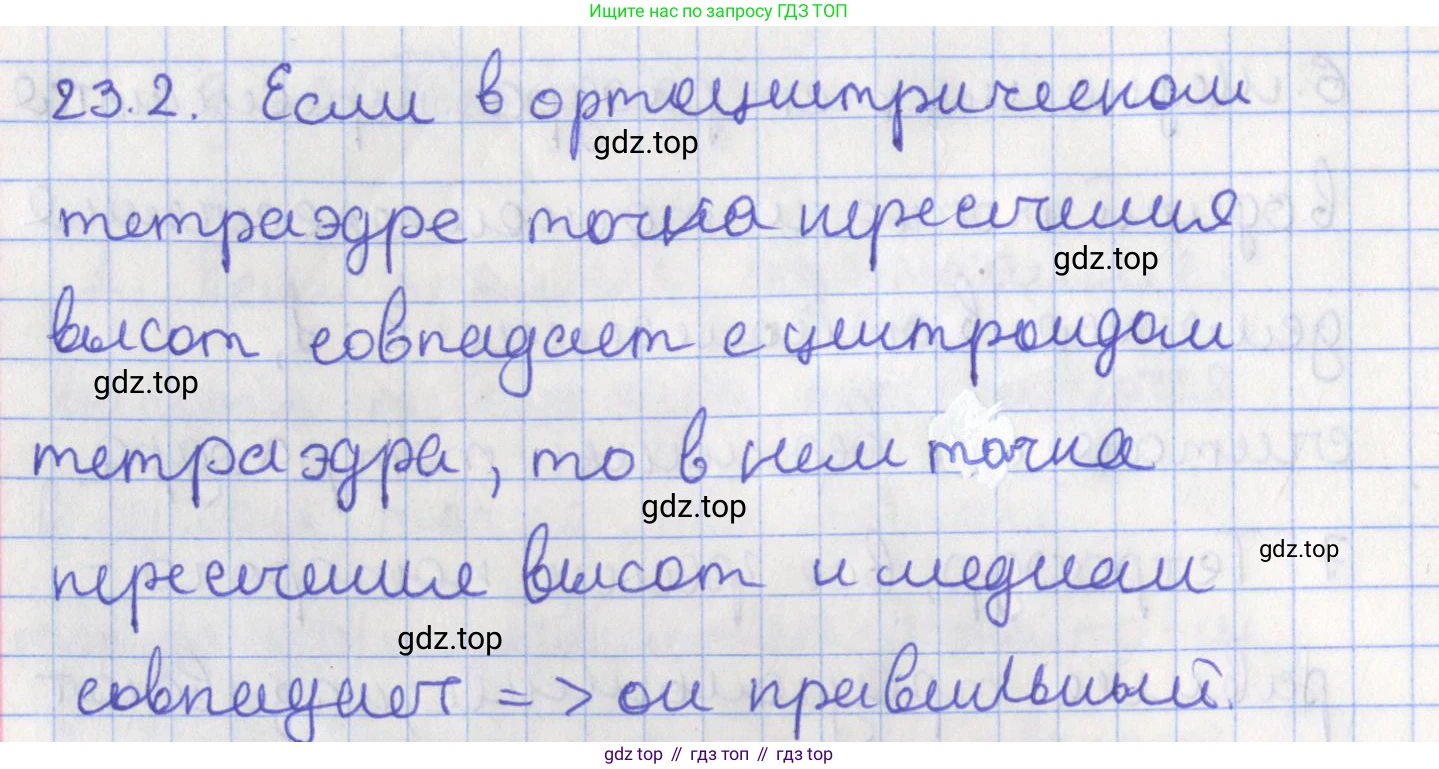 Ищите нас по запросу ГДЗ ТОП
23.2. Если в ортоцентрическом
gdz.top
тетраэдре точка пересечения
gdz.top
высот совпадает с центроидом
gdz.top
тетраэдра, то в нем точка
gdz.top
gdz.top
пересечение высот и медиан
gdz.top
совпадает => он правильный.
gdz top // гдз топ // гдз top